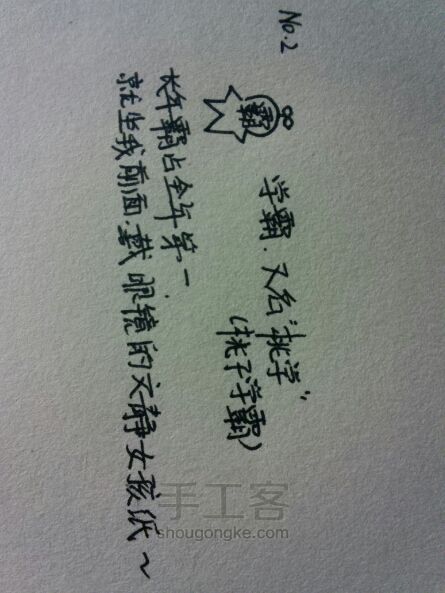 No.2
霸
学霸.又名"桃学"
(桃子学霸)
长年霸占全年第一.
就坐我前面.戴眼镜的文静女孩纸~
手工客
shougongke.com